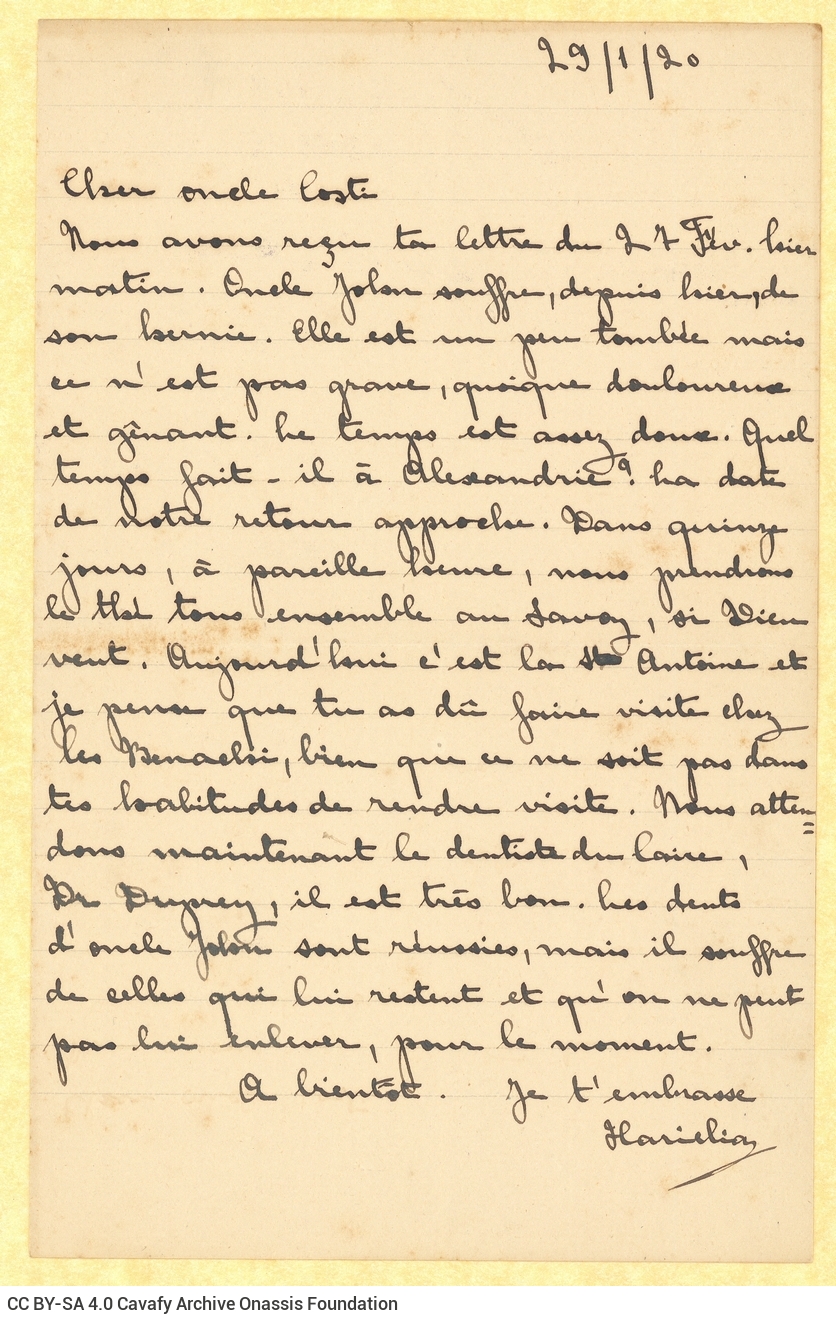 29/1/20
Cher oncle Costi
Nous avons reçu ta lettre du 27 Fév. hier
matin. Oncle John souffre, depuis hier, de
son hernie. Elle est un peu tombée mais
ce n'est pas grave, quoique douloureux
et gênant. Le temps est assez doux. Quel
temps fait-il à Alexandrie? La date
de notre retour approche. Dans quinze
jours, à pareille heure, nous prendrons
le thé tous ensemble au Savoy, si Dieu
veut. Aujourd'hui c'est la St Antoine et
je pense que tu as dû faire visite chez
les Benachi, bien que ce ne soit pas dans
tes habitudes de rendre visite. Nous atten=
dons maintenant le dentiste du Caire,
Dr Duprey, il est très bon. Les dents
d'oncle John sont réussies, mais il souffre
de celles qui lui restent et qu'on ne peut
pas lui enlever, pour le moment.
A bientôt. Je t'embrasse
Hariclia
CC BY-SA 4.0 Cavafy Archive Onassis Foundation